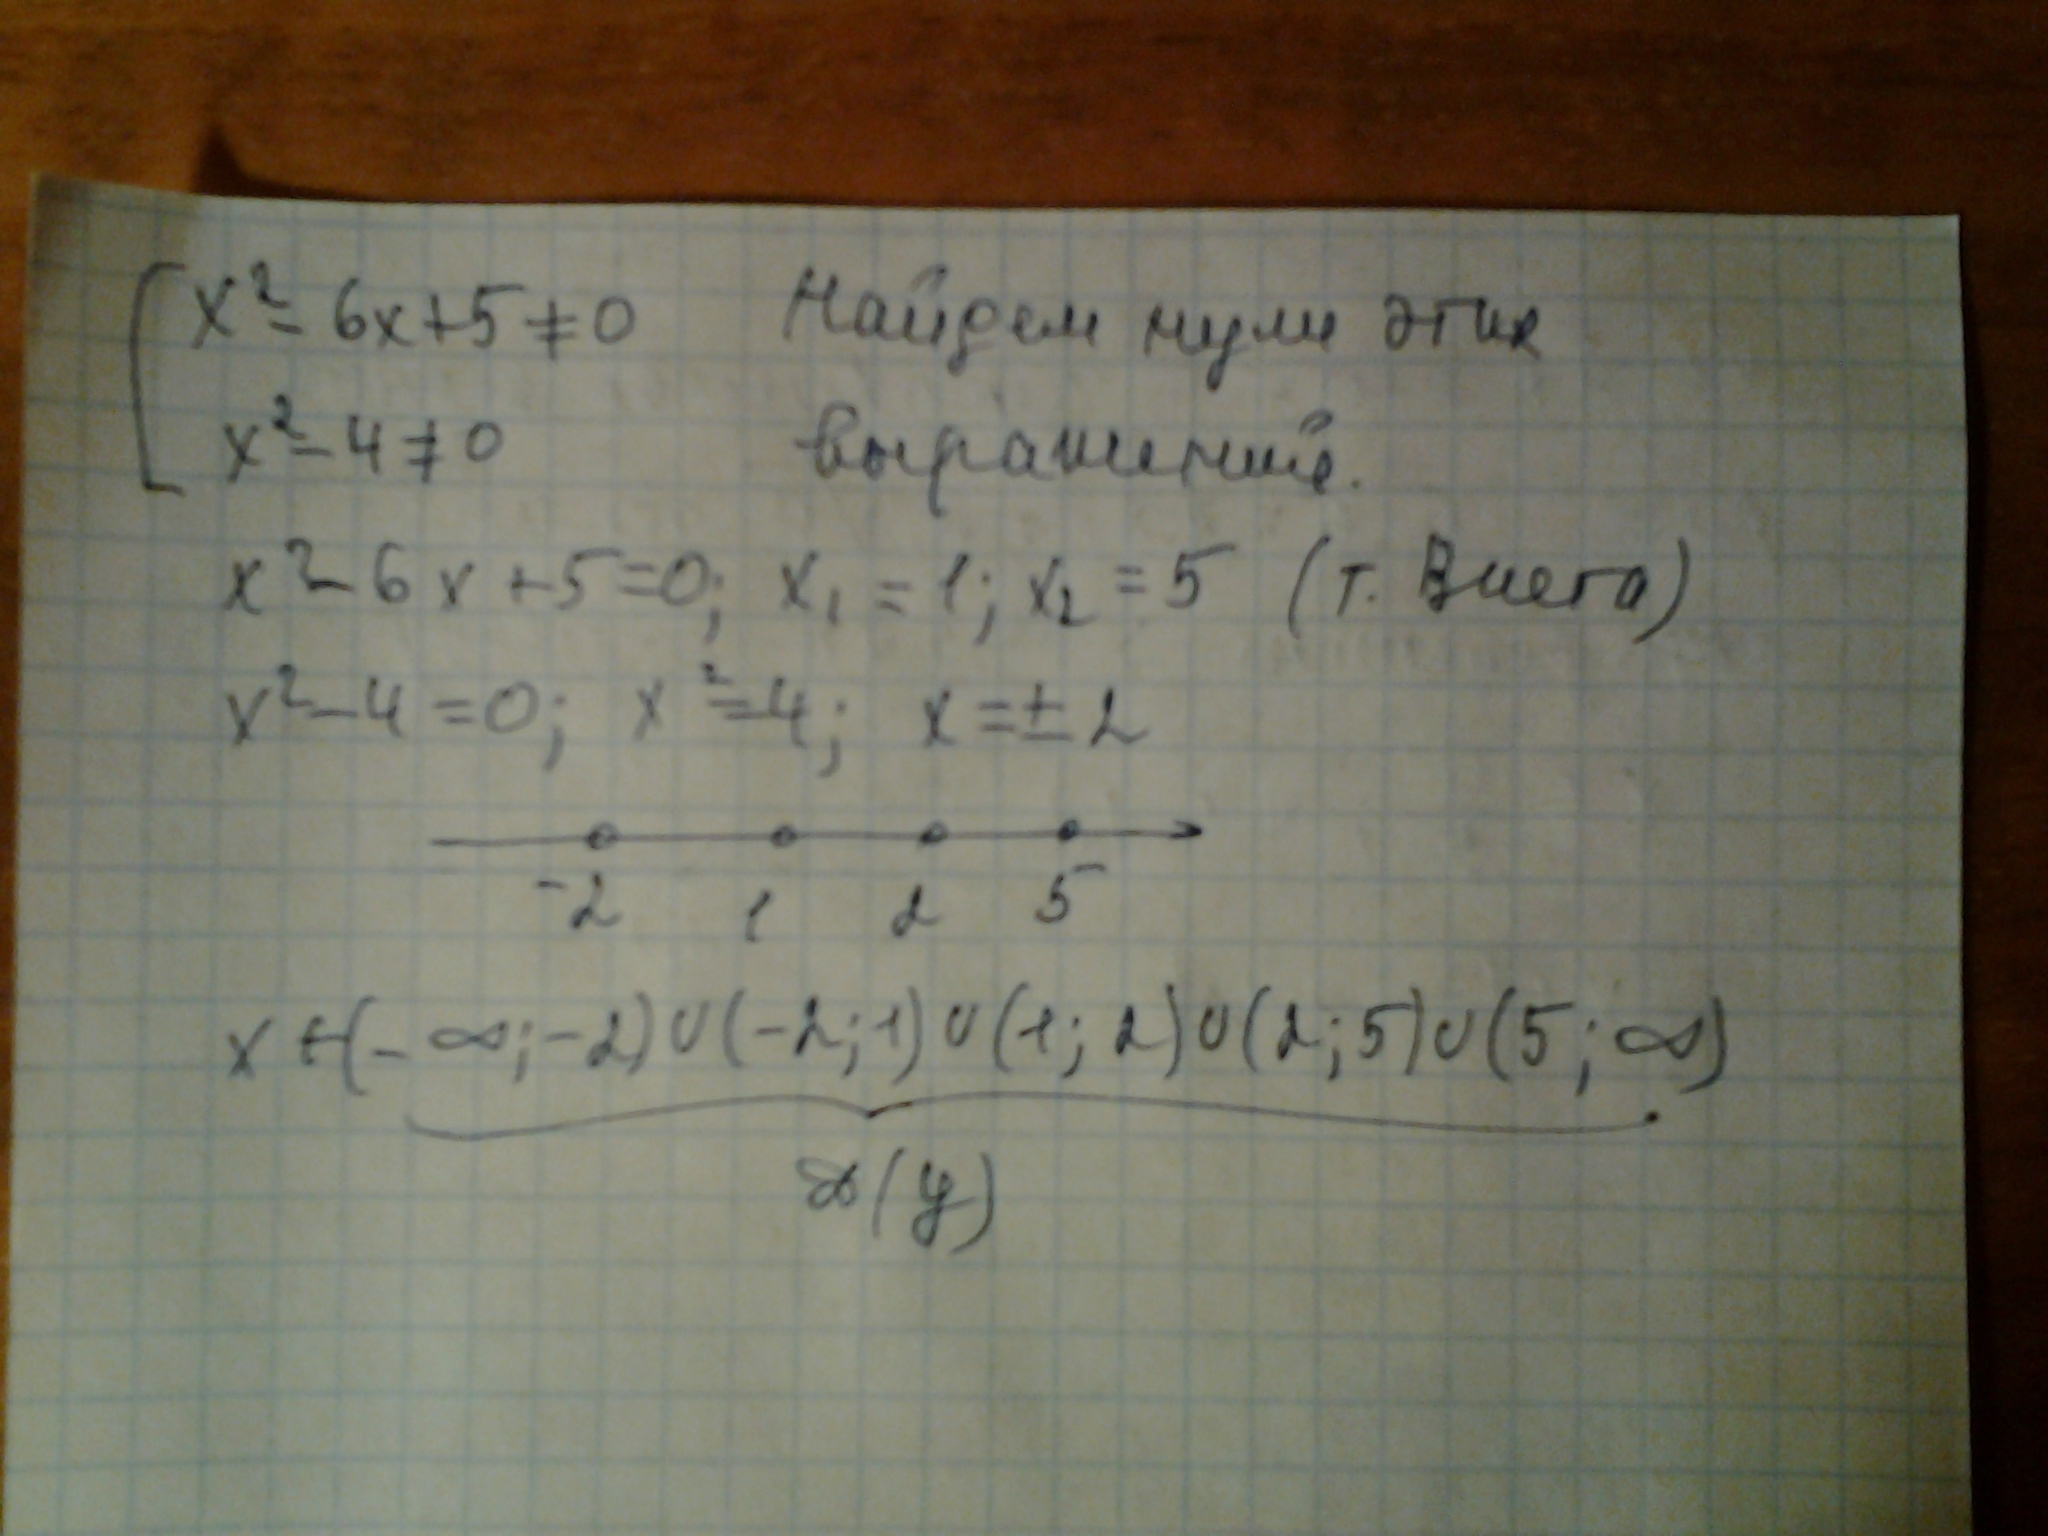 [ x² - 6x + 5 ≠ 0 Найдем нули этих
x² - 4 ≠ 0 выражений.
x² - 6x + 5 = 0; x₁ = 1; x₂ = 5 (т. Виета)
x² - 4 = 0; x² = 4; x = ± 2
-2 1 2 5
x ∈ (-∞; -2) ∪ (-2; 1) ∪ (1; 2) ∪ (2; 5) ∪ (5; ∞)
D(y)